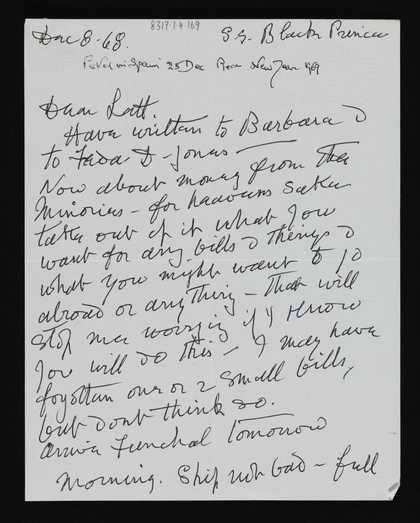 8317.1.4.169
Dec 8-68. S.S. Black Prince
25 Dec New Year 1969
Dear Lett.
Have written to Barbara &
to D-Jones
Now about money from the
Minories - for heavens sake
take out of it what you
want for any bills & things &
what you might want to go
abroad or anything - that will
stop me worrying if I know
you will do this - I may have
forgotten one or 2 small bills,
but dont think so.
arrive Funchal tomorrow
morning. Ship not bad - full